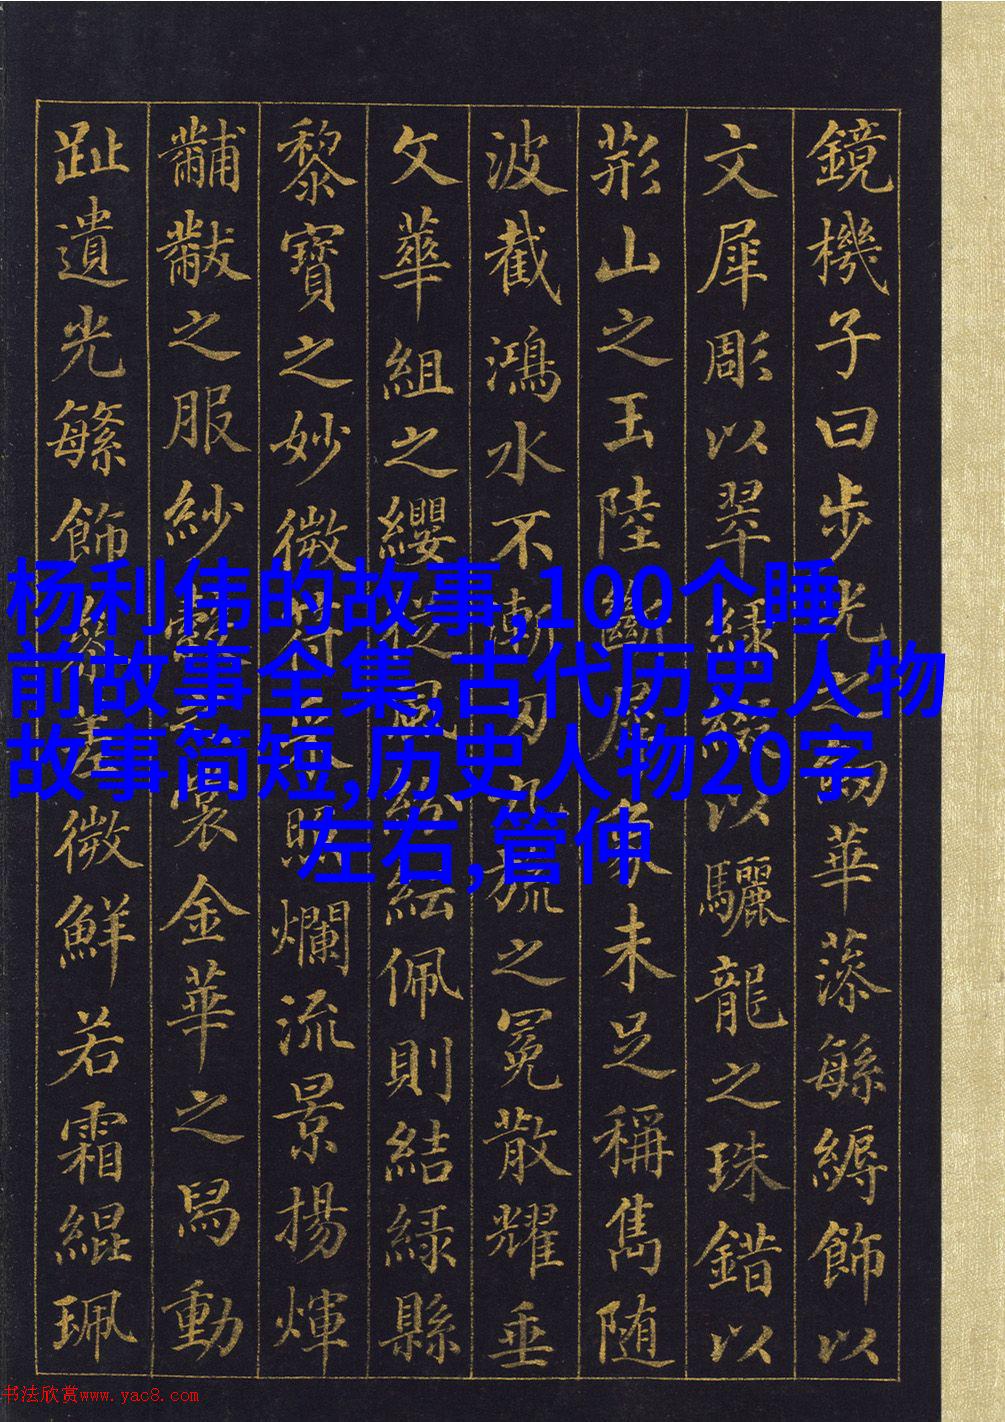 鏡機子曰步光之華藻緐縟飾以
文犀彫以翠緑綴以驪龍之珠錯以
荊山之玉陸斷犀象未足稱雋随
波截鴻水不漸刃九旒之冕散耀垂
文華組之纓從風紛紜佩則結緑縣
黎寶之妙微符采照爛流景揚煇
黼黻之服紗縠之裳金華之舄動
趾遺光緐飾參差微鮮若霜緄珮
杨利伟的故事,100个睡
前故事全集,古代历史人物
故事简短,历史人物20字
左右,管仲
书法欣赏www.yac8.com